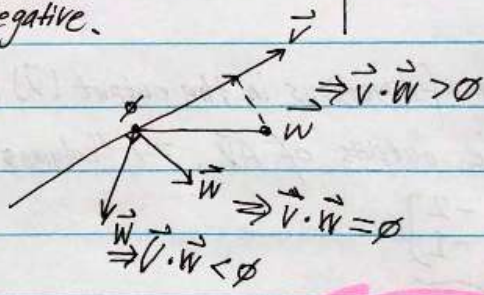 egative.
v⃗
⇒ v⃗·w⃗ > ∅
∅
w⃗
w⃗ ⇒ v⃗·w⃗ = ∅
w⃗
⇒ v⃗·w⃗ < ∅